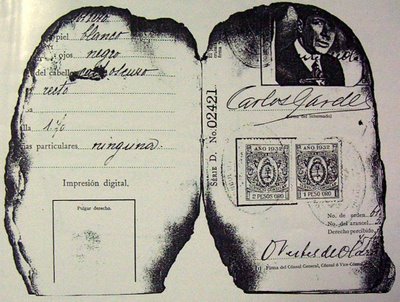 piel blanco
ojos negro
del cabello
recto
lla 1.70
as particulares ninguna
Impresión digital.
Pulgar derecho.
SERIE D, No. 02421
Carlos Gardel
AÑO 1932
2 PESOS ORO
AÑO 1932
1 PESO ORO
No. de orden
No. del arancel
Derecho percibido
Firma del Cónsul General, Cónsul ó Vice-Cónsul